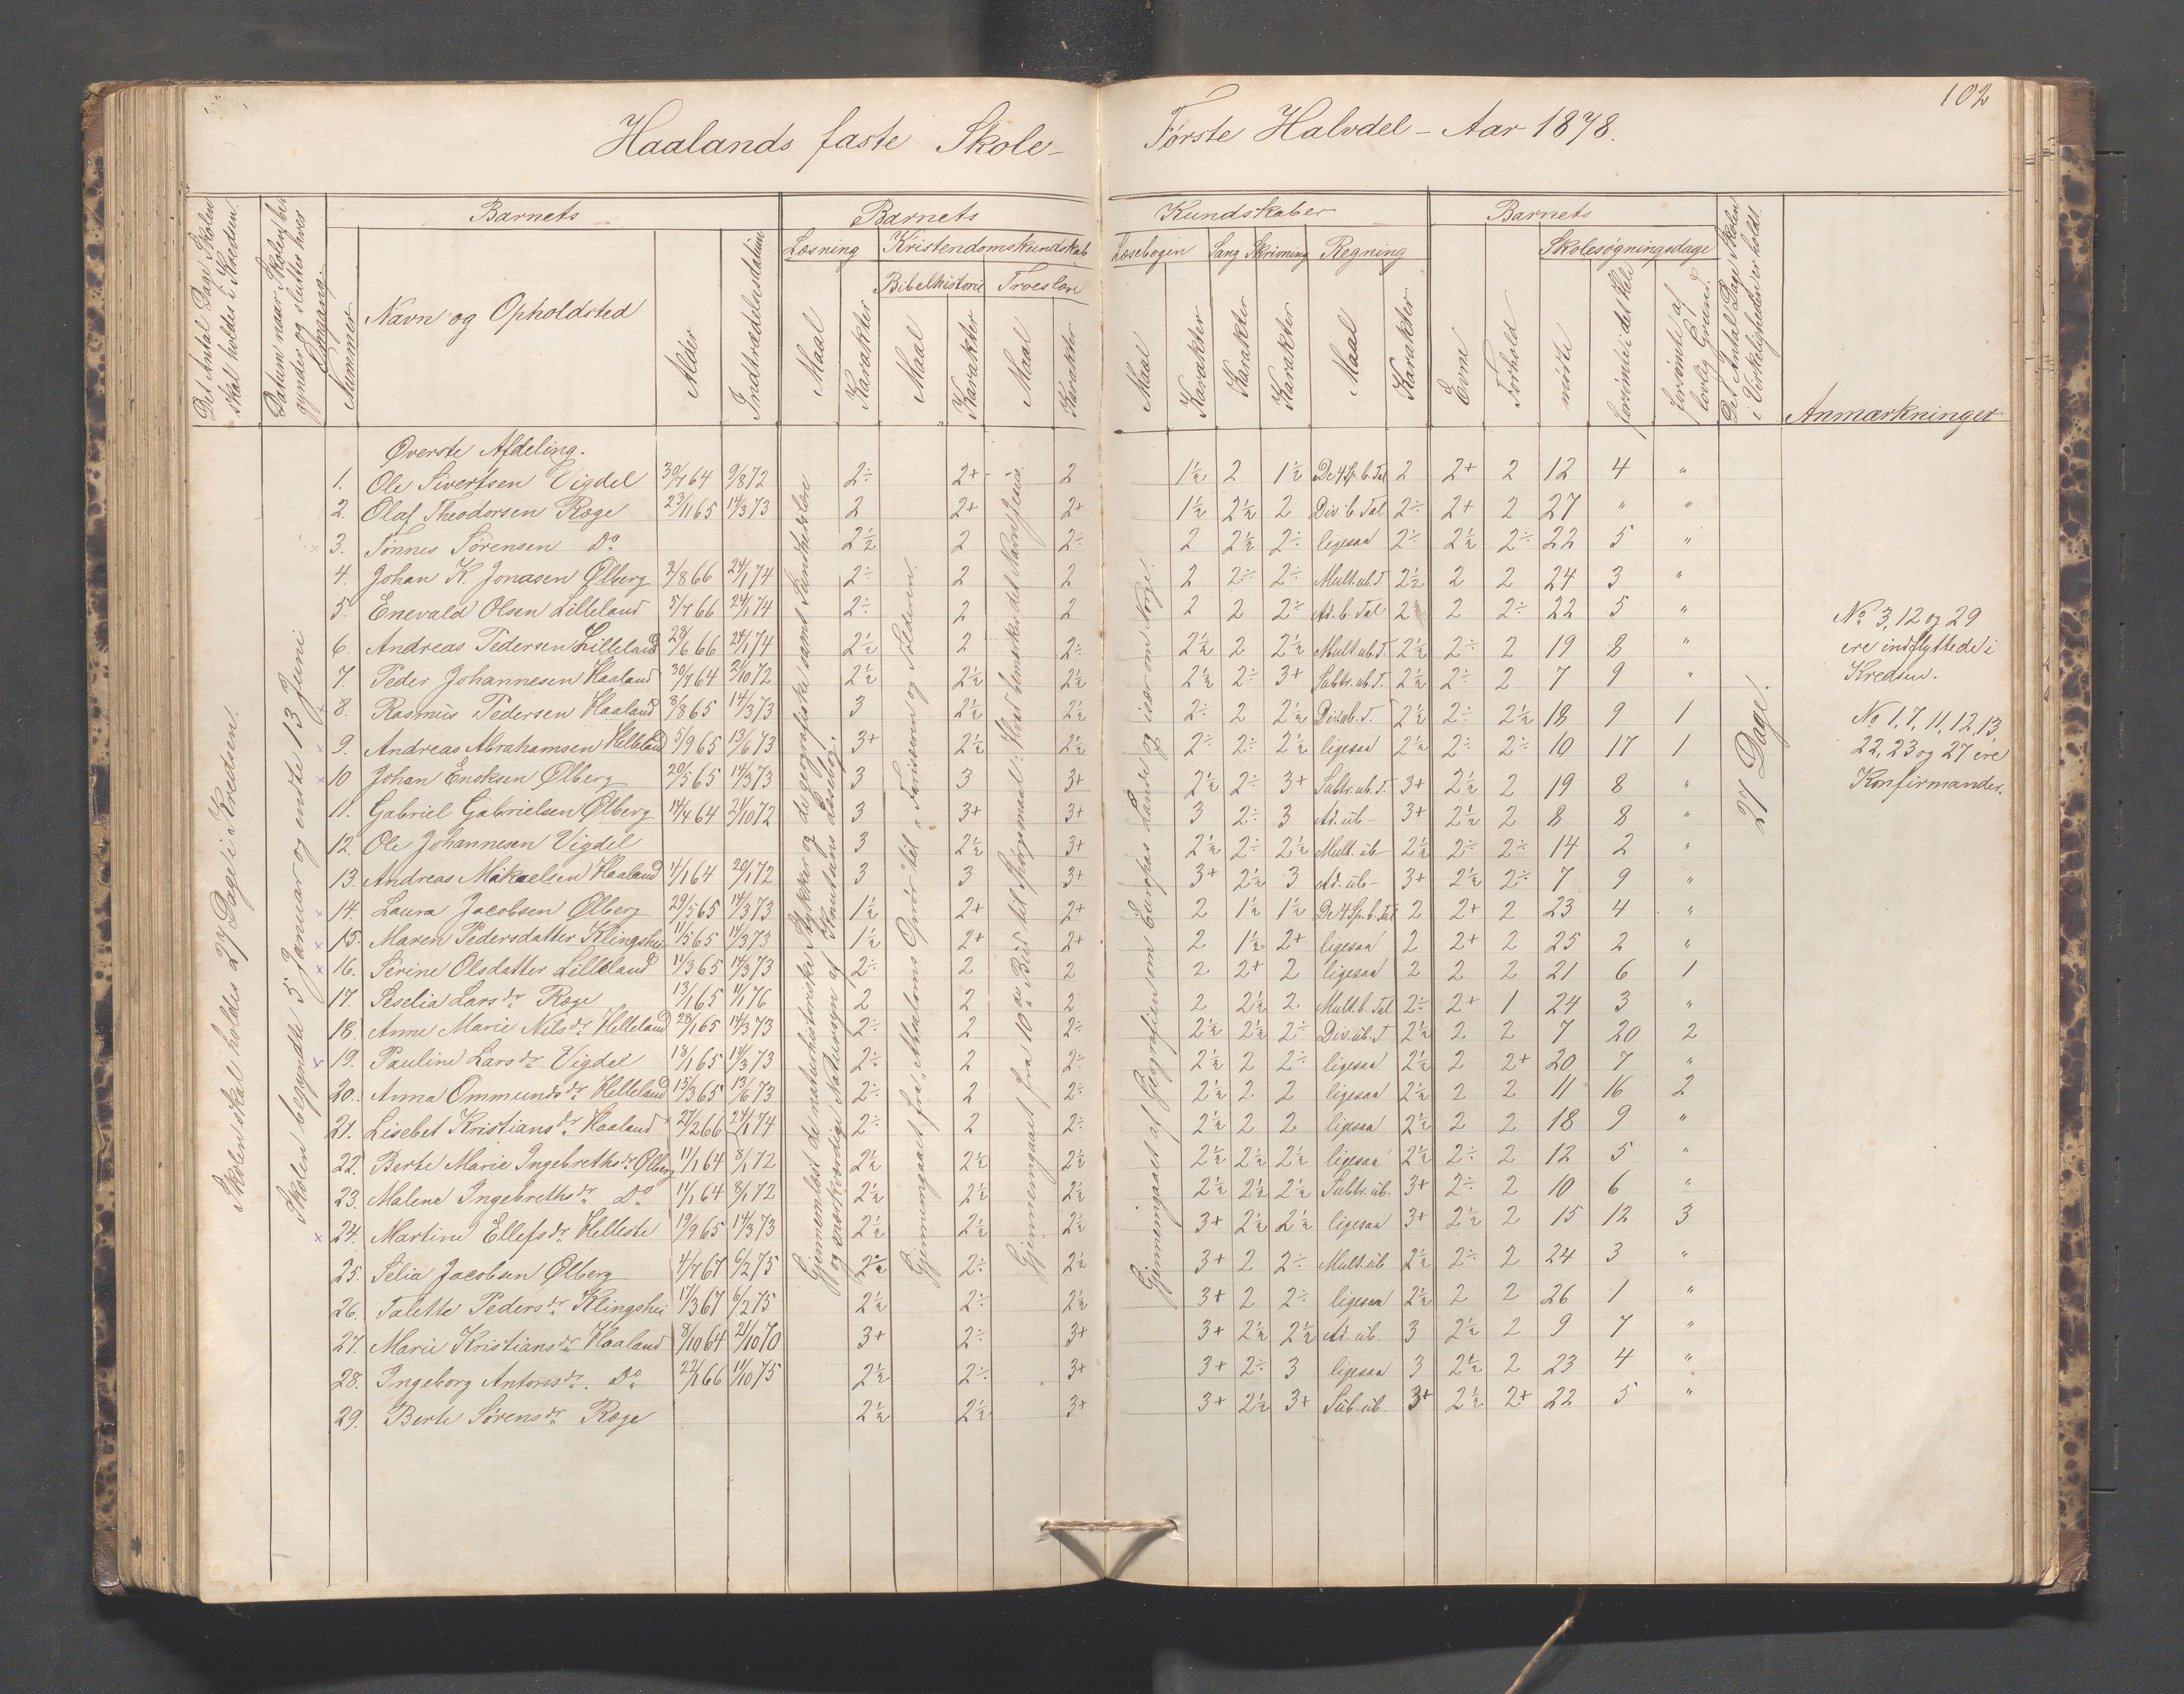 102
Haalands faste Skole- Første Halvdel - Aar 1878.
Det Antal Dage Skolen skal holdes i Kredsen.
Datum naar Skolen begynder og slutter hver Omgang.
Barnets
Nummer
Navn og Opholdsted
Alder
Indtrædelsesdatum
Barnets Kundskaber
Læsning
Maal
Karakter
Kristendomskundskab
Bibelhistorie
Maal
Karakter
Troeslære
Maal
Karakter
Læsebogen
Maal
Karakter
Sang
Karakter
Skrivning
Karakter
Regning
Maal
Karakter
Barnets
Evne
Forhold
Skolesøgningsdage
mødte
forsømte i det Hele
forsømte af lovlig Grund
Det Antal Dage Skolen i Virkeligheden er holdt.
Anmærkninger
Skolen skal holdes 27 Dage i Kredsen.
Skolen begyndte 5 Januar og endte 13 Juni
Gjennemlæst de naturhistoriske Stykker og de geografiske samt Sundhedslære
og mærkværdige Natursyn af Knutsens Læsebog.
Gjennemgaaet fra "Absaloms Oprör" til "Farisæeren og Tolderen".
Gjennemgaaet fra 10de Bud til Spörgsmaal: Hvad bemærker det Navn Jesus.
Gjennemgaaet af Geografien om Europas Lande og især om Norge.
27 Dage.
Øverste Afdeling.
1. Ole Sivertsen Vigdel 30/7 64 9/8 72 2÷ 2+ 2 1½ 2 1½ De 4 Sp. b. Tal 2 2+ 2 12 4 "
2. Olaf Theodorsen Roge 23/11 65 14/3 73 2 2+ 2+ 1½ 2½ 2 Div. b. Tal 2÷ 2+ 2 27 " "
3. Tønnes Sørensen Do 2½ 2 2÷ 2 2½ 2÷ ligesaa 2÷ 2½ 2÷ 22 5 "
4. Johan K. Jonasen Ølberg 2/8 66 24/1 74 2÷ 2 2 2 2÷ 2÷ Mult. ub. T 2½ 2 2 24 3 "
5. Enevald Olsen Lilleland 5/7 66 24/1 74 2÷ 2 2 2 2 2÷ Ad. b. Tal 2 2 2÷ 22 5 "
6. Andreas Pedersen Lilleland 28/6 66 24/1 74 2½ 2 2÷ 2½ 2 2½ Mult. ub. T. 2½ 2÷ 2 19 8 "
7. Peder Johannesen Haaland 30/7 64 21/10 72 2½ 2½ 2½ 2½ 2÷ 3+ Subtr. ub. T. 2½ 2÷ 2 7 9 "
8. Rasmus Pedersen Haaland 8/8 65 14/3 73 3 2½ 2½ 2÷ 2 2½ Div. ub. T. 2½ 2÷ 2½ 18 9 1
9. Andreas Abrahamsen Helleland 5/9 65 13/6 73 3+ 2½ 2½ 2÷ 2÷ 2½ ligesaa 2½ 2÷ 2÷ 10 17 1
10 Johan Enoksen Ølberg 20/5 65 14/3 73 3 3 3+ 2½ 2÷ 3+ Subtr. ub. T. 3+ 2½ 2 19 8 "
11. Gabriel Gabrielsen Ølberg 14/4 64 21/10 72 3 3+ 3+ 3 2÷ 3 Ad. ub- 3+ 2½ 2 8 8 "
12. Ole Johannesen Vigdel 3 2½ 3+ 2½ 2÷ 2½ Mult. ub- 2½ 2÷ 2÷ 14 2 "
13. Andreas Mikaelsen Haaland 4/1 64 20/1 72 3 3 3+ 3+ 2½ 3 Ad. ub- 3+ 2½ 2÷ 7 9 "
14. Laura Jacobsen Ølberg 29/5 65 14/3 73 1½ 2+ 2+ 2 1½ 1½ De 4 Sp. b. Tal 2 2+ 2 23 4 "
15. Maren Pedersdatter Klingshei 11/5 65 14/3 73 1½ 2+ 2+ 2 1½ 2+ ligesaa 2 2+ 2 25 2 "
16. Serine Olsdatter Lilleland 11/3 65 14/3 73 2÷ 2 2 2 2+ 2 ligesaa 2 2 2 21 6 1
17. Seselia Larsdr Roge 13/1 65 11/1 76 2 2 2 2 2½ 2. Mult. b. Tal 2÷ 2+ 1 24 3 "
18. Anne Marie Nilsdr Helleland 28/1 65 14/3 73 2÷ 2 2÷ 2½ 2½ 2÷ Div. ub. T 2½ 2 2 7 20 2
19. Pauline Larsdr Vigdel 18/1 65 14/3 73 2÷ 2 2÷ 2½ 2 2÷ ligesaa 2½ 2 2+ 20 7 "
20. Anna Ommundsdr Helleland 15/3 65 13/6 73 2÷ 2 2÷ 2½ 2 2 ligesaa 2½ 2 2 11 16 2
21. Lisebet Kristiansdr Haaland 27/2 66 24/1 74 2÷ 2 2÷ 2½ 2 2 ligesaa 2½ 2 2 18 9 "
22. Berte Marie Ingebrethsdr Ølberg 11/1 64 8/1 72 2½ 2½ 2½ 2½ 2½ 2½ ligesaa 2½ 2÷ 2 12 5 "
23. Malene Ingebrethsdr Do 11/1 64 8/1 72 2½ 2½ 2½ 2½ 2½ 2½ Subtr. ub. 3+ 2÷ 2 10 6 "
24. Martine Ellefsdr Helleste 19/9 65 14/3 73 2½ 2½ 2½ 3+ 2½ 2½ ligesaa 3+ 2½ 2 15 12 3
25. Selia Jacobsen Ølberg 4/7 67 6/2 75 2½ 2÷ 2½ 3+ 2 2÷ Mult. ub 2½ 2÷ 2 24 3 "
26. Talette Pedersdr Klingshei 17/3 67 6/2 75 2½ 2÷ 2½ 3+ 2 2÷ ligesaa 2½ 2 2 26 1 "
27. Marie Kristiansdr Haaland 8/10 64 21/10 70 3+ 2÷ 3+ 3+ 2½ 2½ Ad. ub. 3 2½ 2 9 7 "
28. Ingeborg Antonsdr. Do 22/1 66 11/10 75 2½ 2÷ 3+ 3+ 2÷ 3 ligesaa 3 2½ 2 23 4 "
29. Berte Sørensdr Roge 2½ 2½ 3+ 3+ 2½ 3+ Sub. ub. 3+ 2½ 2+ 22 5 "
No 3, 12 og 29
ere indflyttede i
Kredsen.
No 1, 7, 11, 12, 13,
22, 23 og 27 ere
Konfirmander.